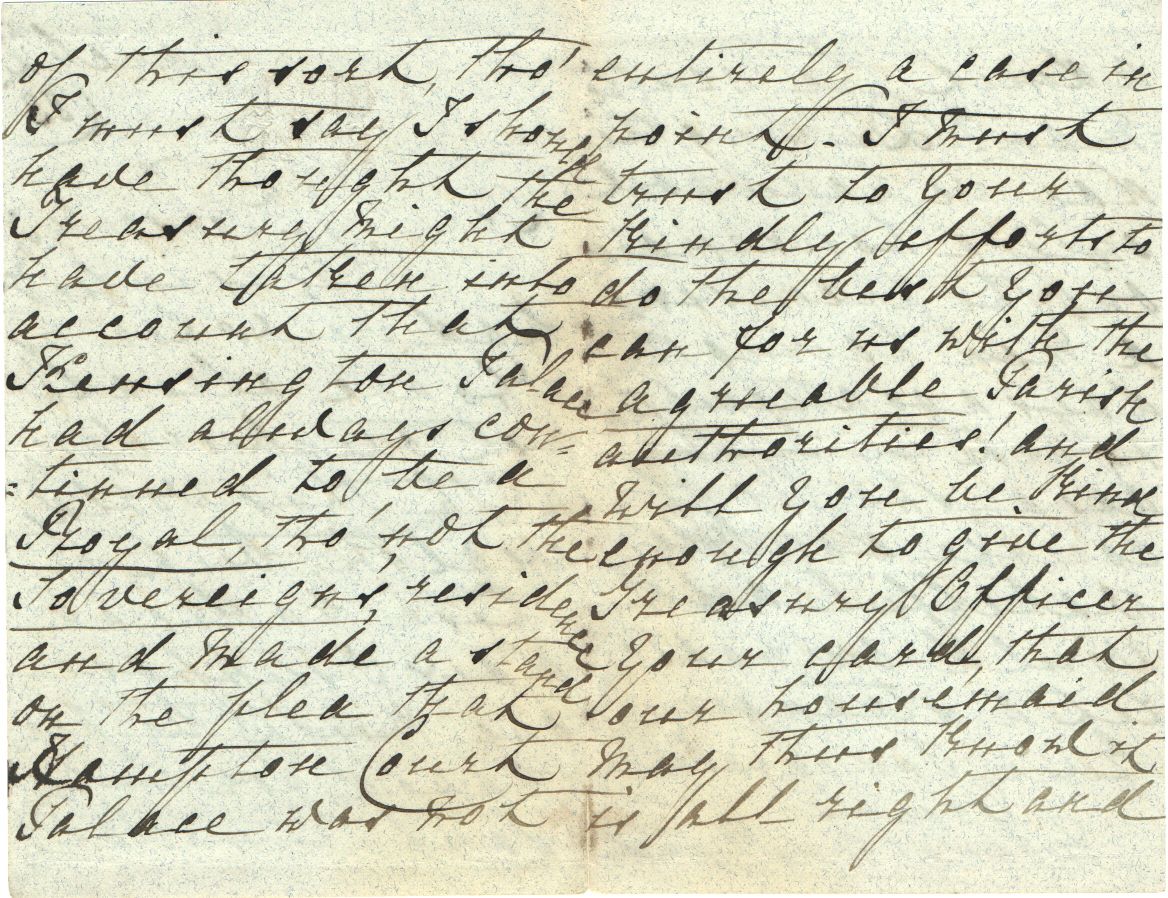 of this sort, tho'
I must say I shoud
have thought the
Treasury Might
have taken into
account that
Kensington Palace
had always con=
=tinued to be a
Royal, tho' not the
Sovereigns, residence
and Made a stand
on the plea that
Hampton Court
Palace was not
entirely a case in
point. I Must
trust to Your
Kindly efforts to
do the best You
can for us with the
agreeable Parish
authorities! and
will You be Kind
enough to give the
Treasury Officer
Your card, that
our housemaid
May thus Know it
is all right and